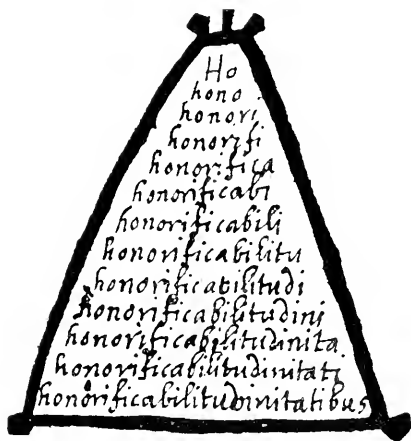 Ho
hono
honori
honorifi
honorifica
honorificabi
honorificabili
honorificabilitu
honorificabilitudi
honorificabilitudini
honorificabilitudinita
honorificabilitudinitati
honorificabilitudinitatibus